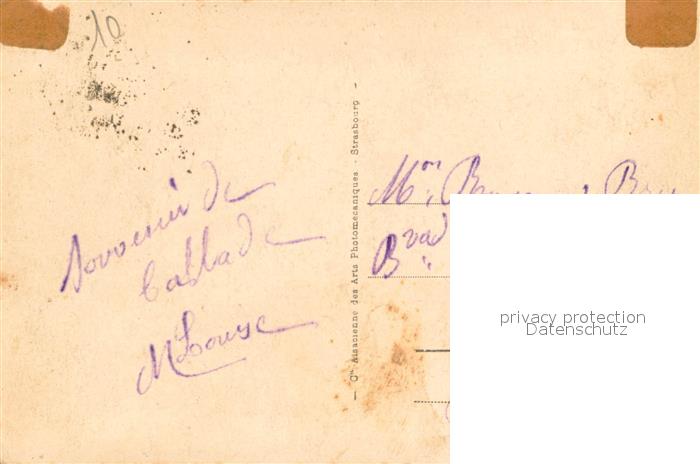 10
Souvenir de
Casbade
M Louise
— Cie Alsacienne des Arts Photomécaniques - Strasbourg —
Mon
Bvad
privacy protection
Datenschutz